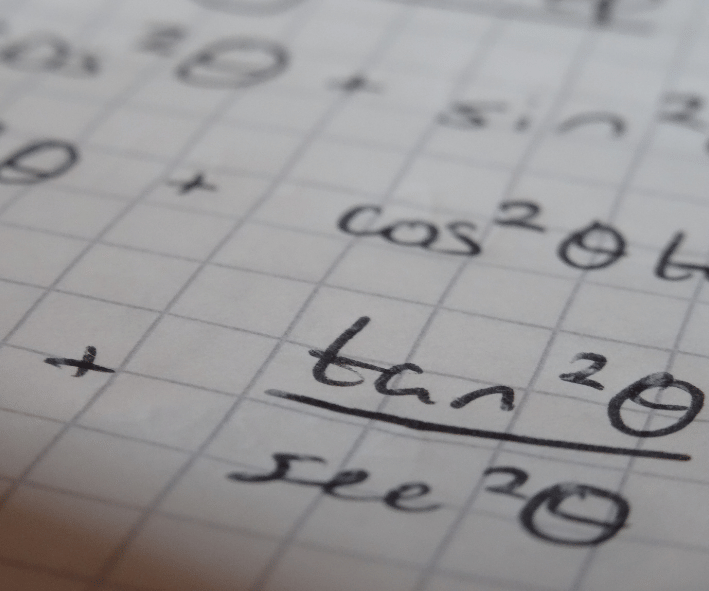 cos²θ + sin²
θ + cos²θ t
+ tan²θ
sec²θ